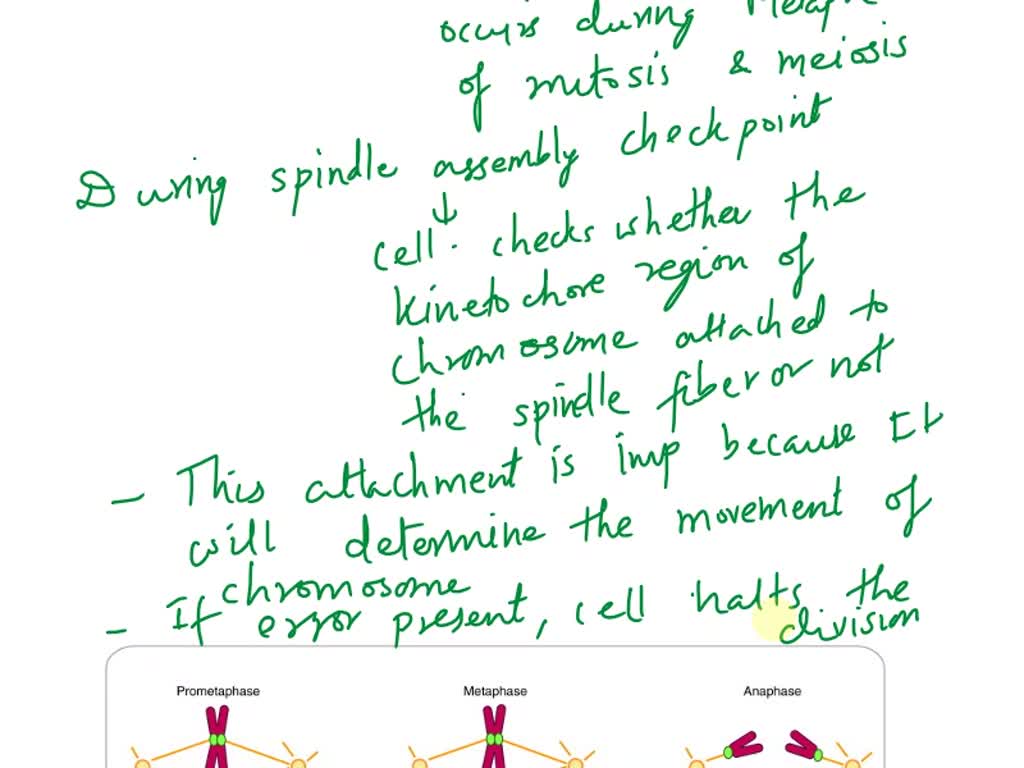 occurs during
of mitosis & meiosis
During spindle assembly checkpoint
↓
cell. checks whether the
kinetochore region of
chromosome attached to
the spindle fiber or not
- This attachment is imp because It
will determine the movement of
chromosome
- If error present, cell halts the
division
Prometaphase Metaphase Anaphase